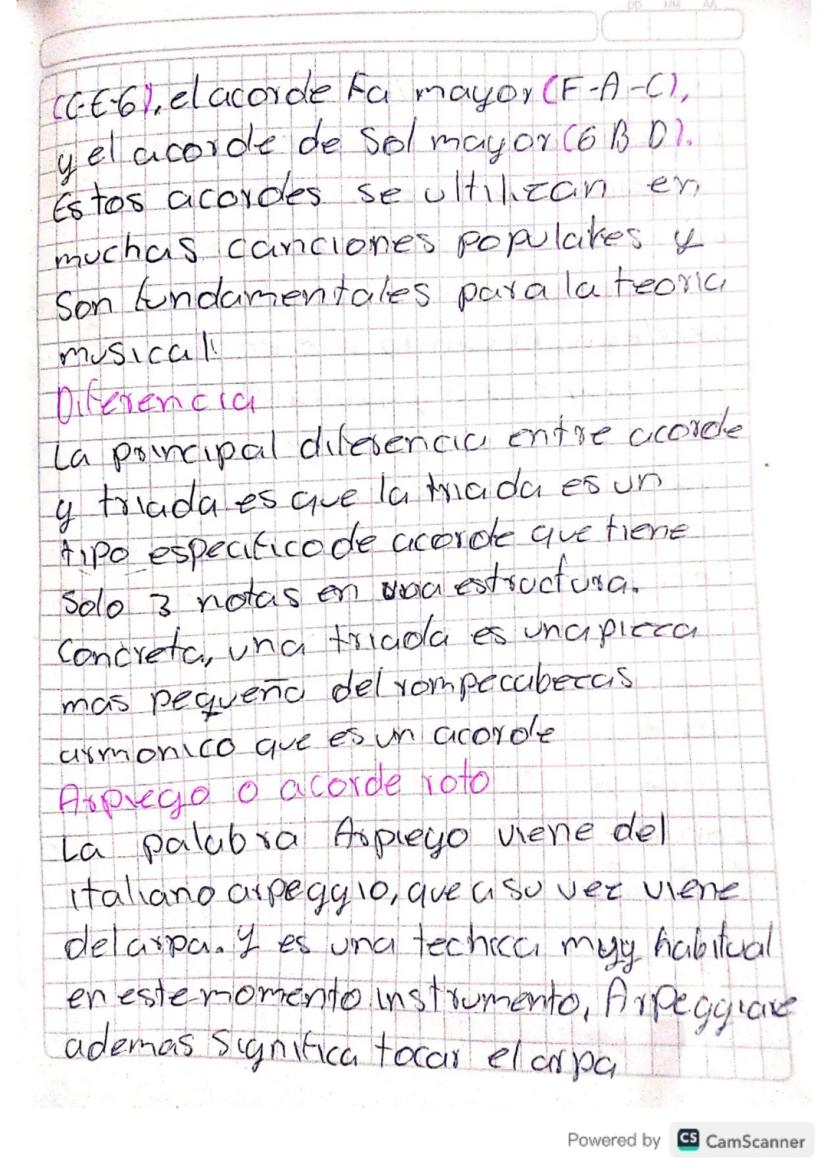 DD MM AA
(C-E-G), el acorde Fa mayor (F-A-C),
y el acorde de Sol mayor (G B D).
Estos acordes se ultilizan en
muchas canciones populares y
Son fundamentales para la teoria
musical!
Diferencia
La principal diferencia entre acorde
y triada es que la triada es un
tipo especificode acorde que tiene
Solo 3 notas en una estructura.
Concreta, una triada es una pieza
mas pequeña del rompecabezas
armonico que es un acorde
Arpiego o acorde roto
La palabra Arpiego viene del
italiano arpeggio, que a su vez viene
del arpa. Y es una techica muy habitual
en este momento instrumento, Arpeggiare
ademas significa tocar el arpa
Powered by CS CamScanner